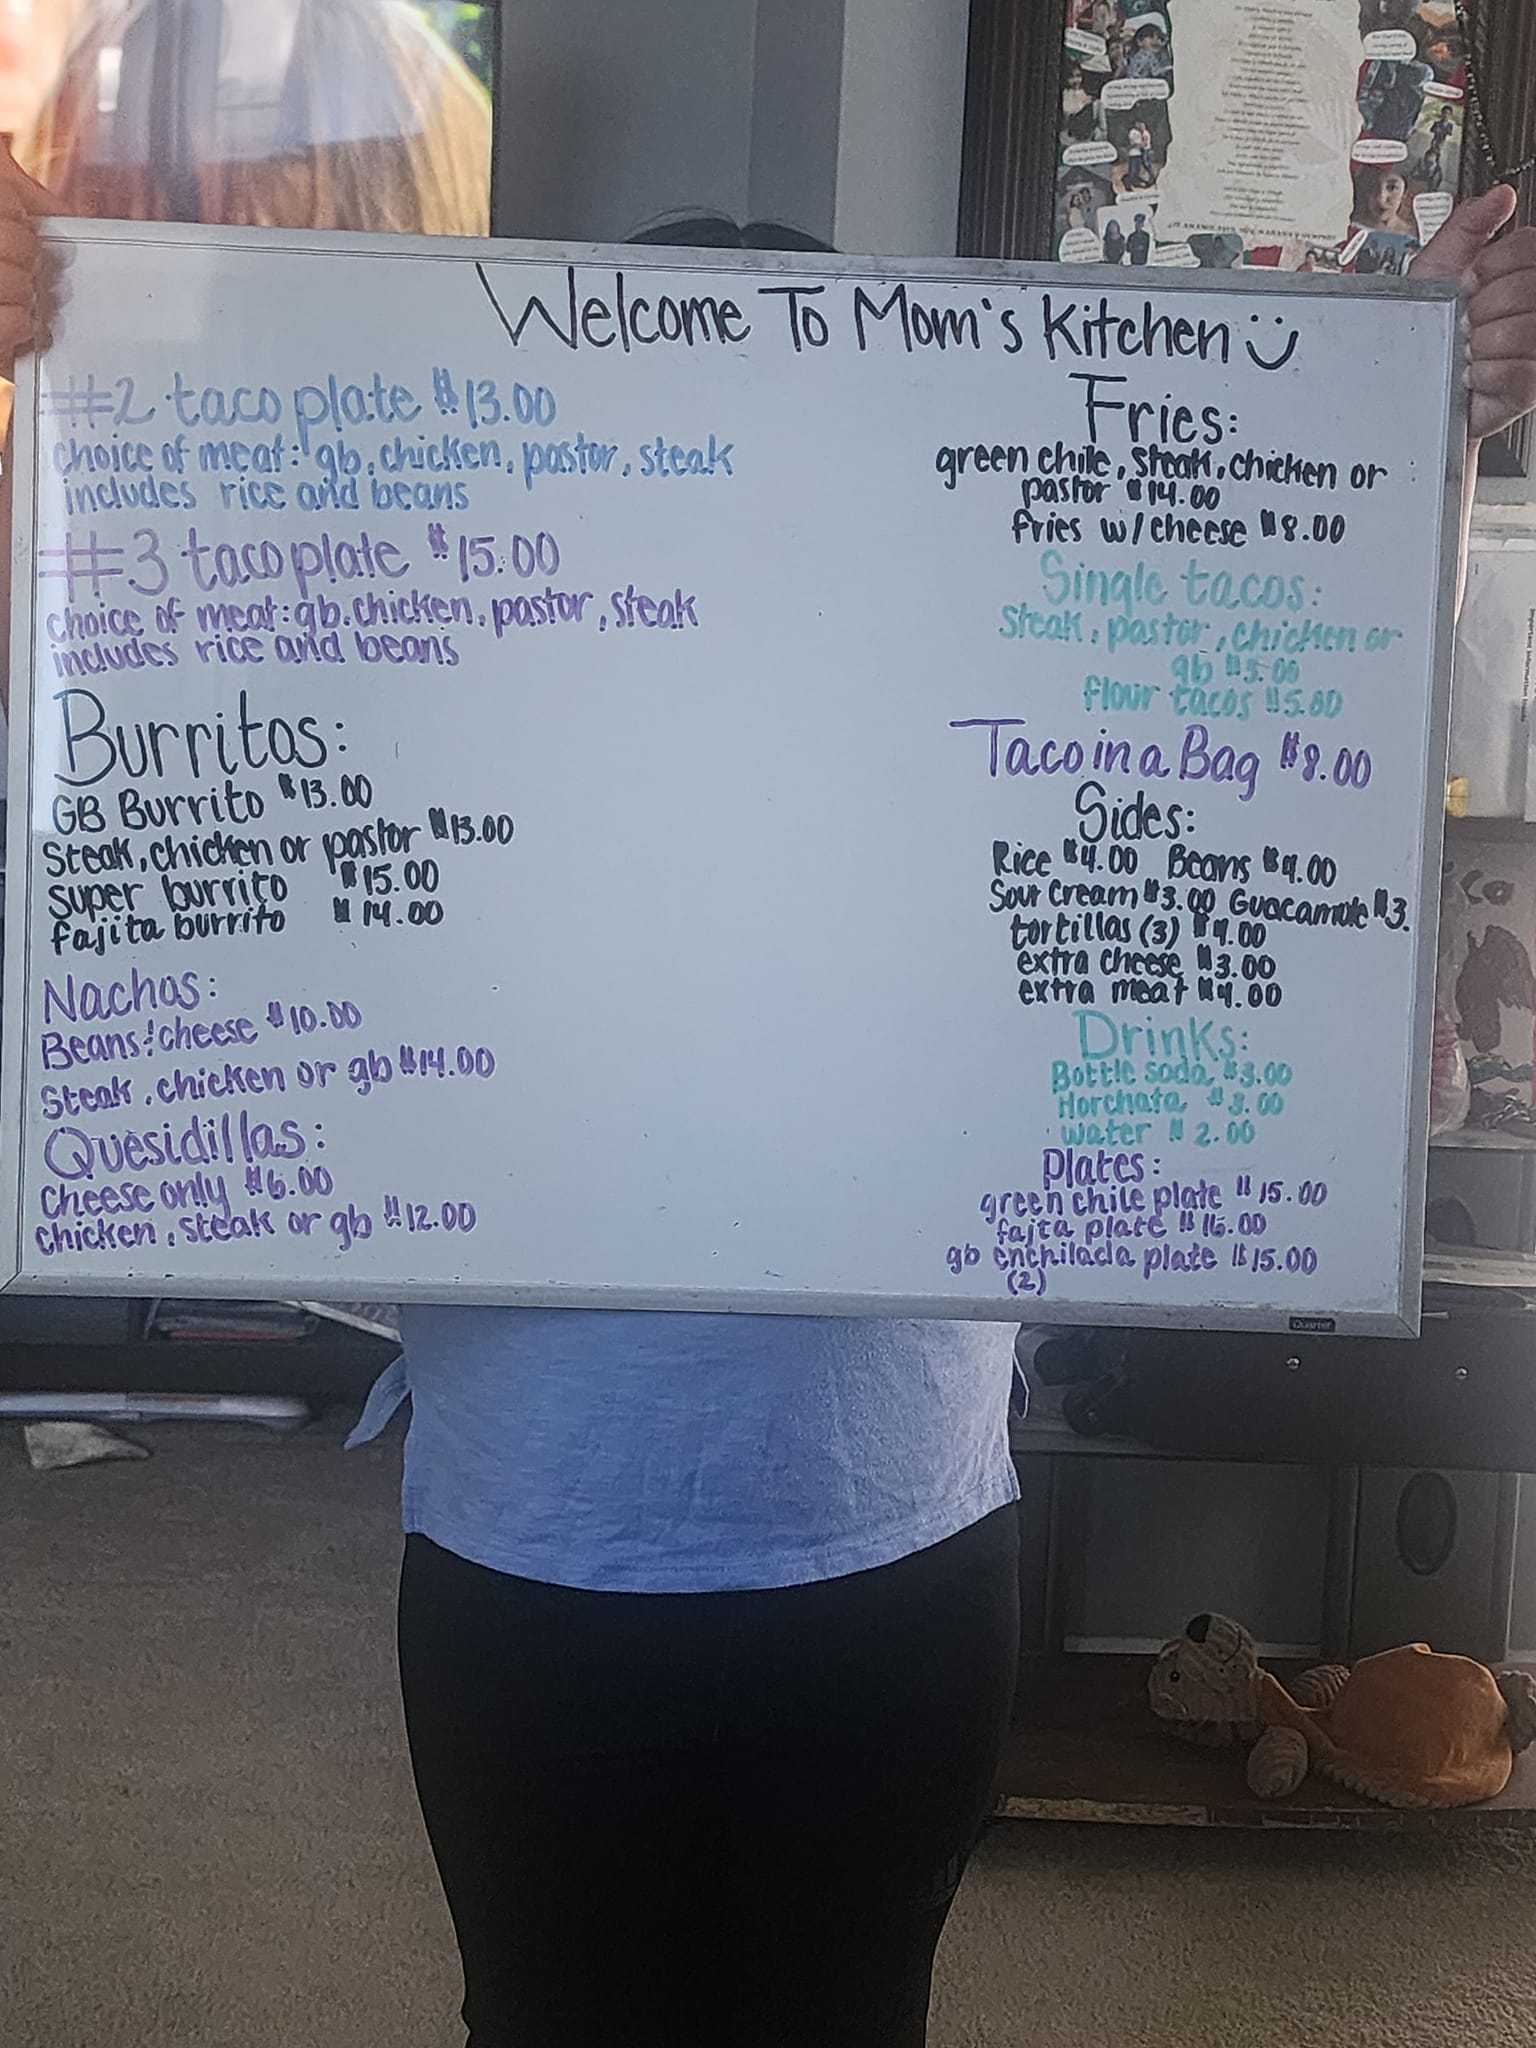 Welcome To Mom's Kitchen :)
#2 taco plate $13.00
choice of meat: gb, chicken, pastor, steak
includes rice and beans
#3 taco plate $15.00
choice of meat: gb, chicken, pastor, steak
includes rice and beans
Burritos:
GB Burrito $13.00
Steak, chicken or pastor $13.00
super burrito $15.00
fajita burrito $14.00
Nachos:
Beans & cheese $10.00
Steak, chicken or gb $14.00
Quesidillas:
cheese only $6.00
chicken, steak or gb $12.00
Fries:
green chile, steak, chicken or
pastor $14.00
fries w/ cheese $8.00
Single tacos:
steak, pastor, chicken or
gb $3.00
flour tacos $5.00
Taco in a Bag $8.00
Sides:
Rice $4.00 Beans $4.00
Sour Cream $3.00 Guacamole $3.
tortillas (3) $4.00
extra cheese $3.00
extra meat $4.00
Drinks:
Bottle soda $3.00
Horchata $3.00
water $2.00
Plates:
green chile plate $15.00
fajta plate $16.00
gb enchilada plate $15.00
(2)
Quartet
Important Information Inside